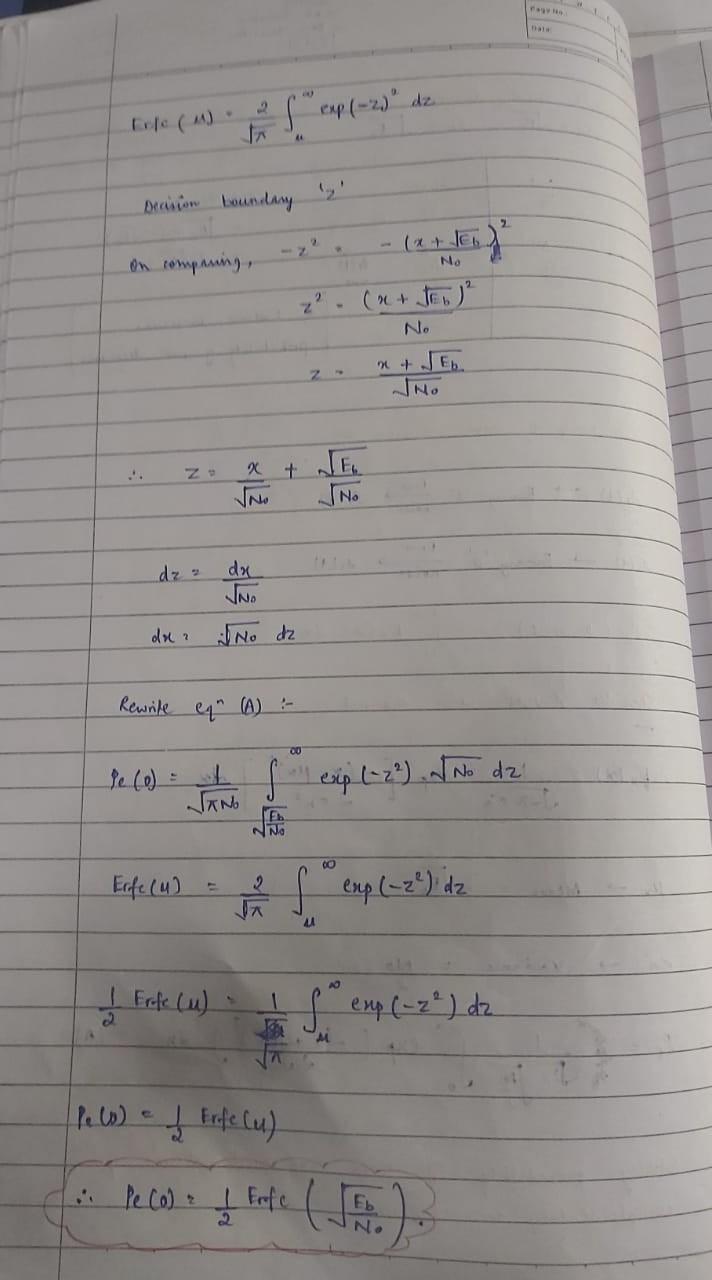 Page No.:
Date:
Erfc (u) = 2/√π ∫_u^∞ exp(-z)² dz
Decision boundary 'z'
On comparing, -z² = -(x + √Eb)²/No
z² = (x + √Eb)²/No
z = x + √Eb/√No
∴ z = x/√No + √Eb/√No
dz = dx/√No
dx = √No dz
Rewrite eqⁿ (A) :-
Pe (0) = 1/√πNo ∫_√(Eb/No)^∞ exp (-z²) . √No dz
Erfc (u) = 2/√π ∫_u^∞ exp (-z²) dz
1/2 Erfc (u) = 1/√π ∫_u^∞ exp (-z²) dz
Pe (0) = 1/2 Erfc (u)
∴ Pe (0) = 1/2 Erfc (√(Eb/No)).